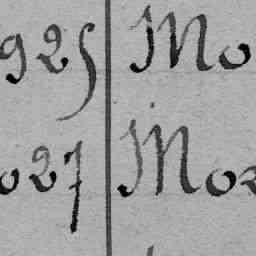 925 Mo
027 Mor